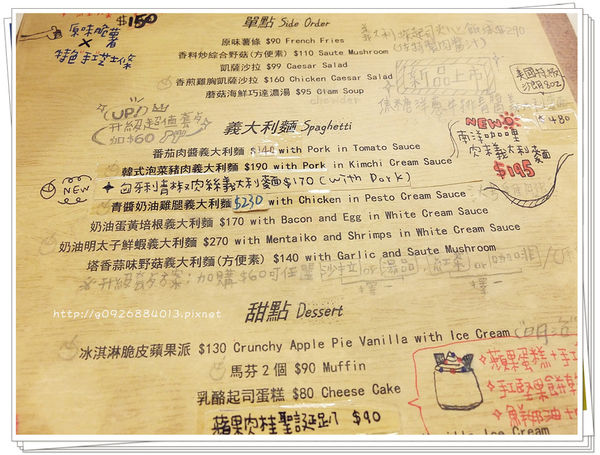 $150
原味脆薯
×
特色手工芝士條
單點 Side Order
原味薯條 $90 French Fries
香料炒綜合野菇(方便素) $110 Saute Mushroom
凱薩沙拉 $99 Caesar Salad
香煎雞胸凱薩沙拉 $160 Chicken Caesar Salad
蘑菇海鮮巧達濃湯 $95 Clam Soup
chowder
新品上市
美國特級
480
UP!
升級超值套餐
加$60
義大利麵 Spaghetti
NEW
南洋咖哩
肉末義大利麵
$195
番茄肉醬義大利麵 $140 with Pork in Tomato Sauce
韓式泡菜豬肉義大利麵 $190 with Pork in Kimchi Cream Sauce
NEW + 匈牙利青椒肉絲義大利麵$170 (with Pork)
青醬奶油雞腿義大利麵 $230 with Chicken in Pesto Cream Sauce
奶油蛋黃培根義大利麵 $170 with Bacon and Egg in White Cream Sauce
奶油明太子鮮蝦義大利麵 $270 with Mentaiko and Shrimps in White Cream Sauce
塔香蒜味野菇義大利麵(方便素) $140 with Garlic and Saute Mushroom
升級套餐方案:加購$60可任選 沙拉 or 湯品 紅茶 or 咖啡
擇一 擇一
http://g0926884013.pixnet
甜點 Dessert
冰淇淋脆皮蘋果派 $130 Crunchy Apple Pie Vanilla with Ice Cream
馬芬2個 $90 Muffin
乳酪起司蛋糕 $80 Cheese Cake
蘋果肉桂聖誕趴 $90
蘋果蛋糕+手工
手工堅果餅乾
鮮奶油+
Vanilla Ice Cream